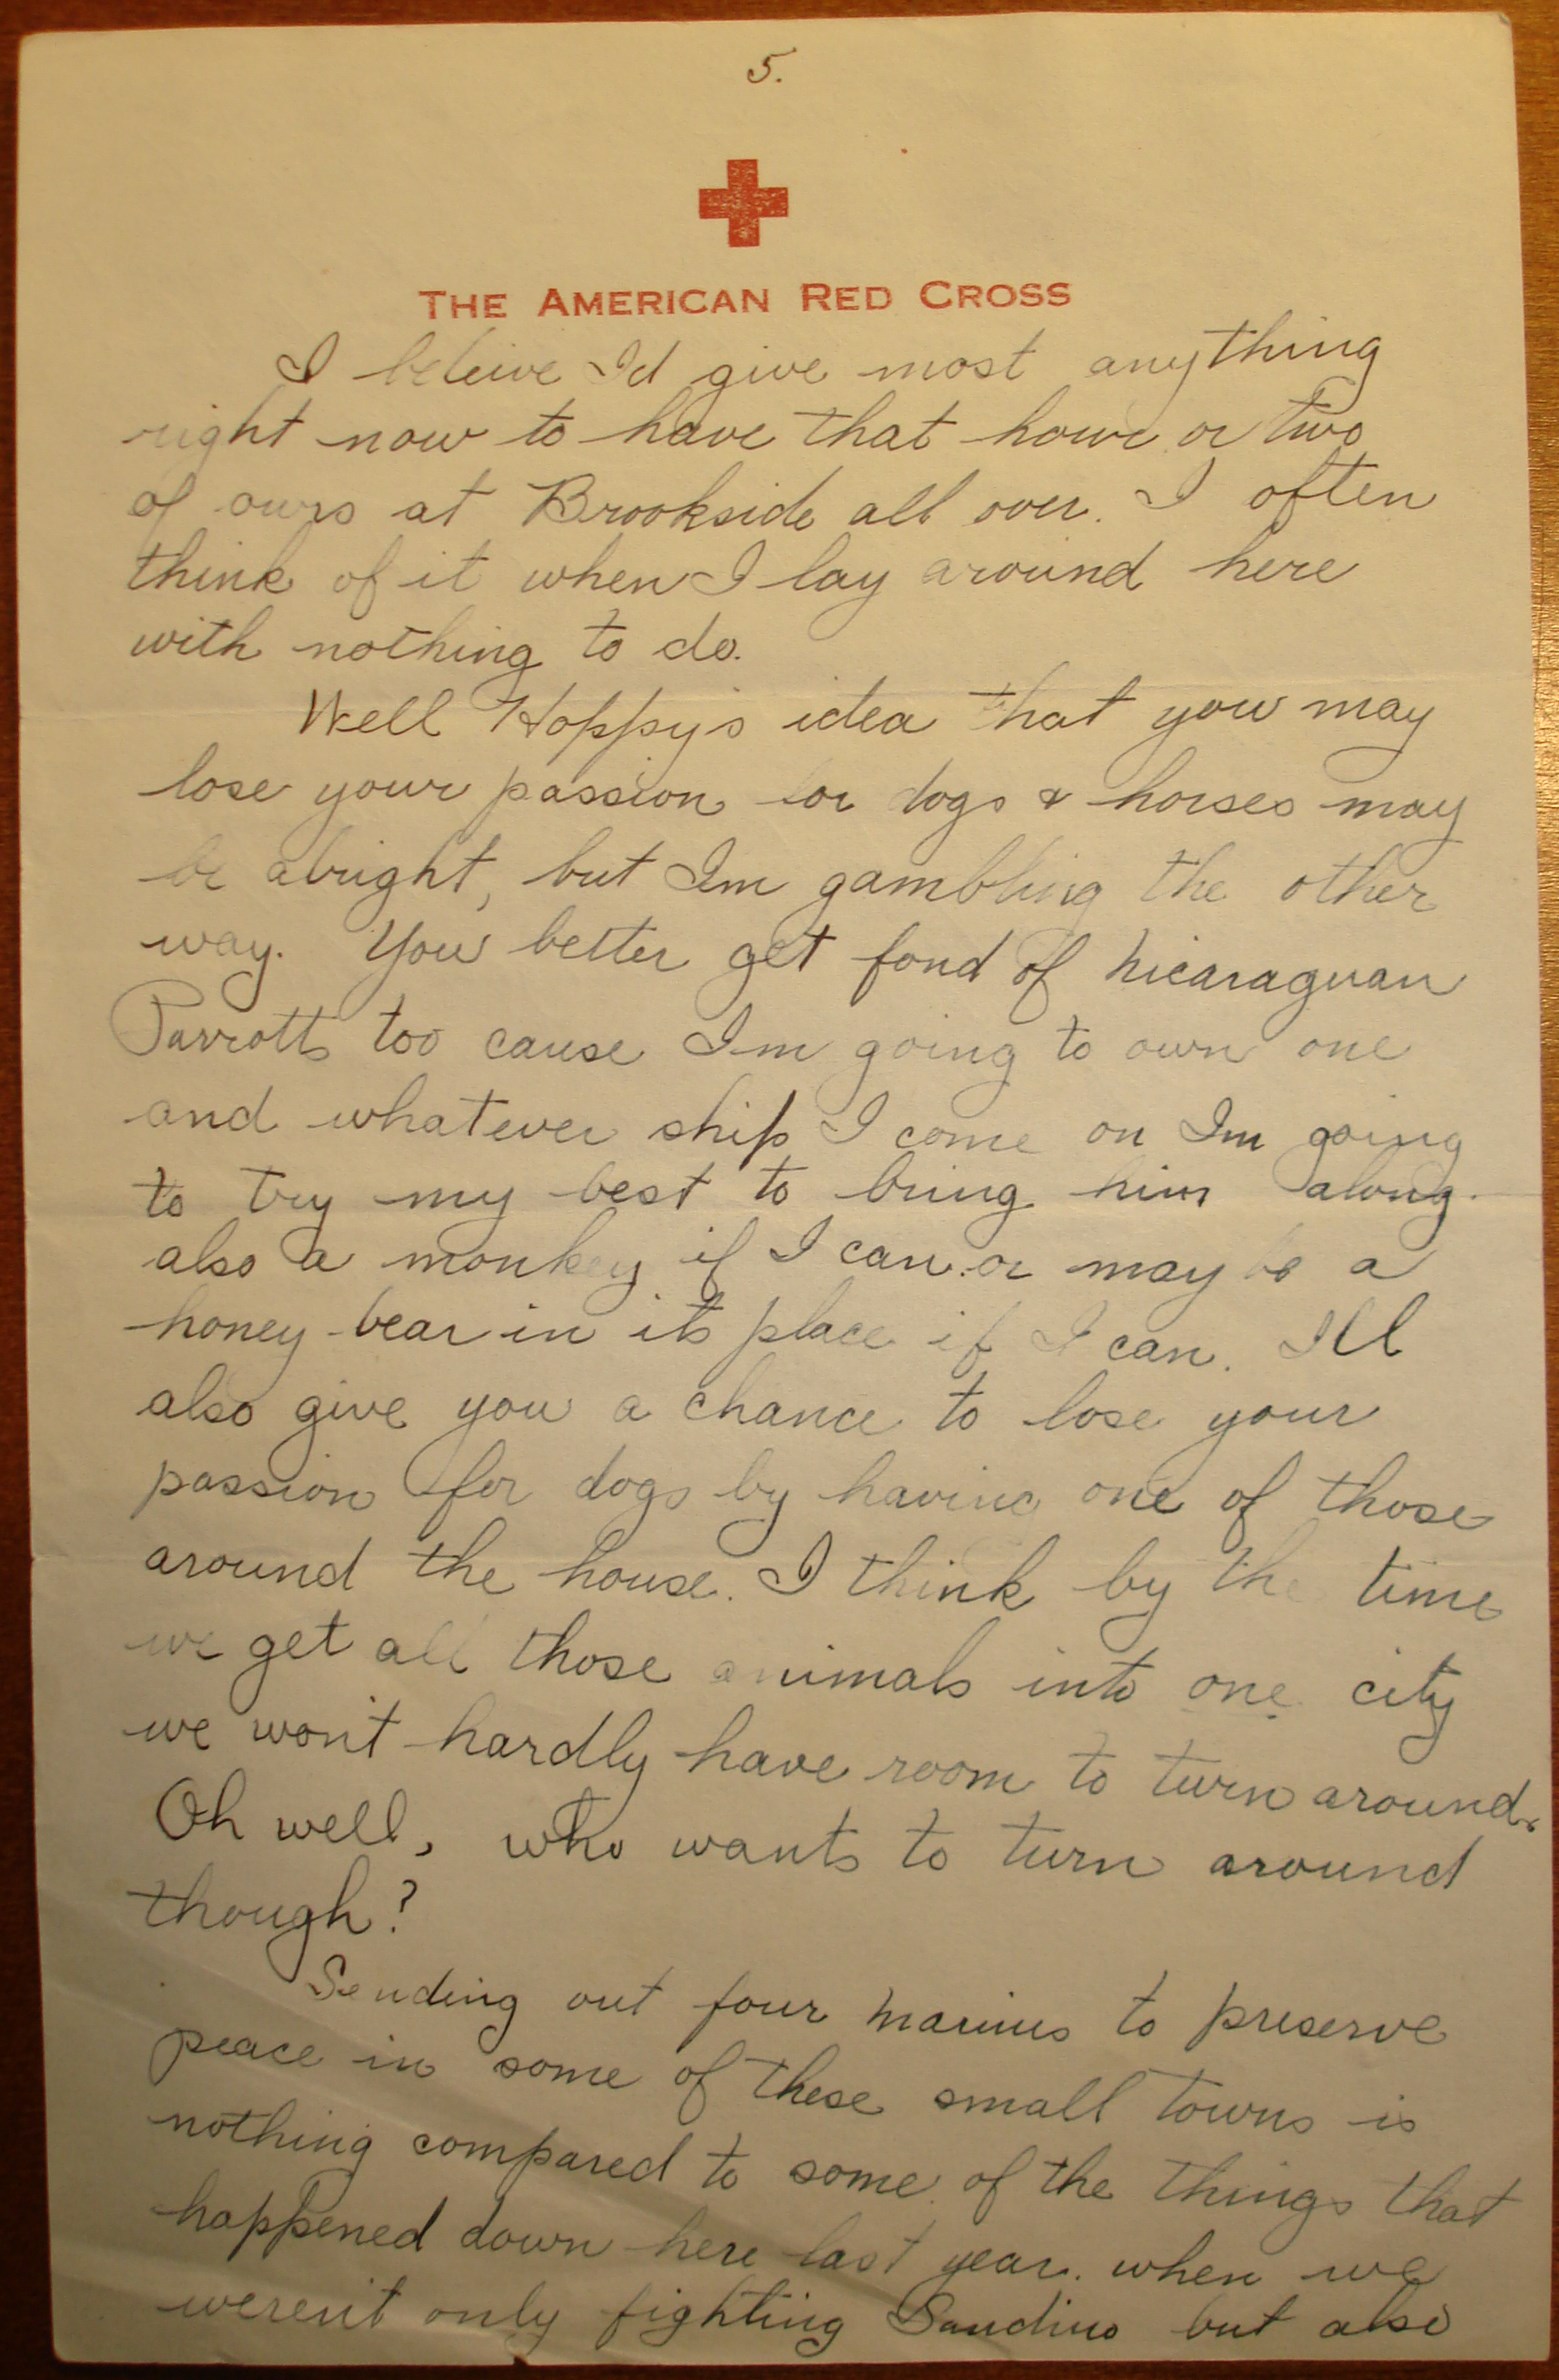 5.
THE AMERICAN RED CROSS
I beleive I'd give most anything
right now to have that hour or two
of ours at Brookside all over. I often
think of it when I lay around here
with nothing to do.
Well Hoppy's idea that you may
lose your passion for dogs & horses may
be alright, but Im gambling the other
way. You better get fond of Nicaraguan
Parrotts too cause Im going to own one
and whatever ship I come on Im going
to try my best to bring him along.
also a monkey if I can or may be a
honey bear in its place if I can. I'll
also give you a chance to lose your
passion for dogs by having one of those
around the house. I think by the time
we get all those animals into one city
we won't hardly have room to turn around.
Oh well, who wants to turn around
though?
Sending out four marines to preserve
peace in some of these small towns is
nothing compared to some of the things that
happened down here last year. when we
weren't only fighting Sandino but also